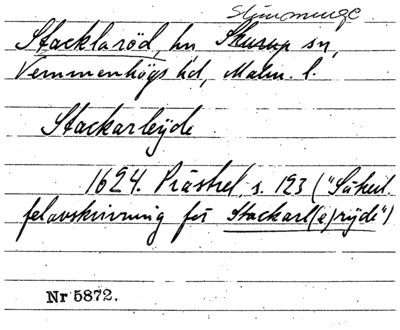 Slimminge
Stacklaröd, hn Skurup sn,
Vemmenhögs hd, Malm. l.
Stackarlÿde
1624. Prästrel. s. 123 ("Säkerl.
felavskrivning för Stackarl(e)rÿde")
Nr 5872.